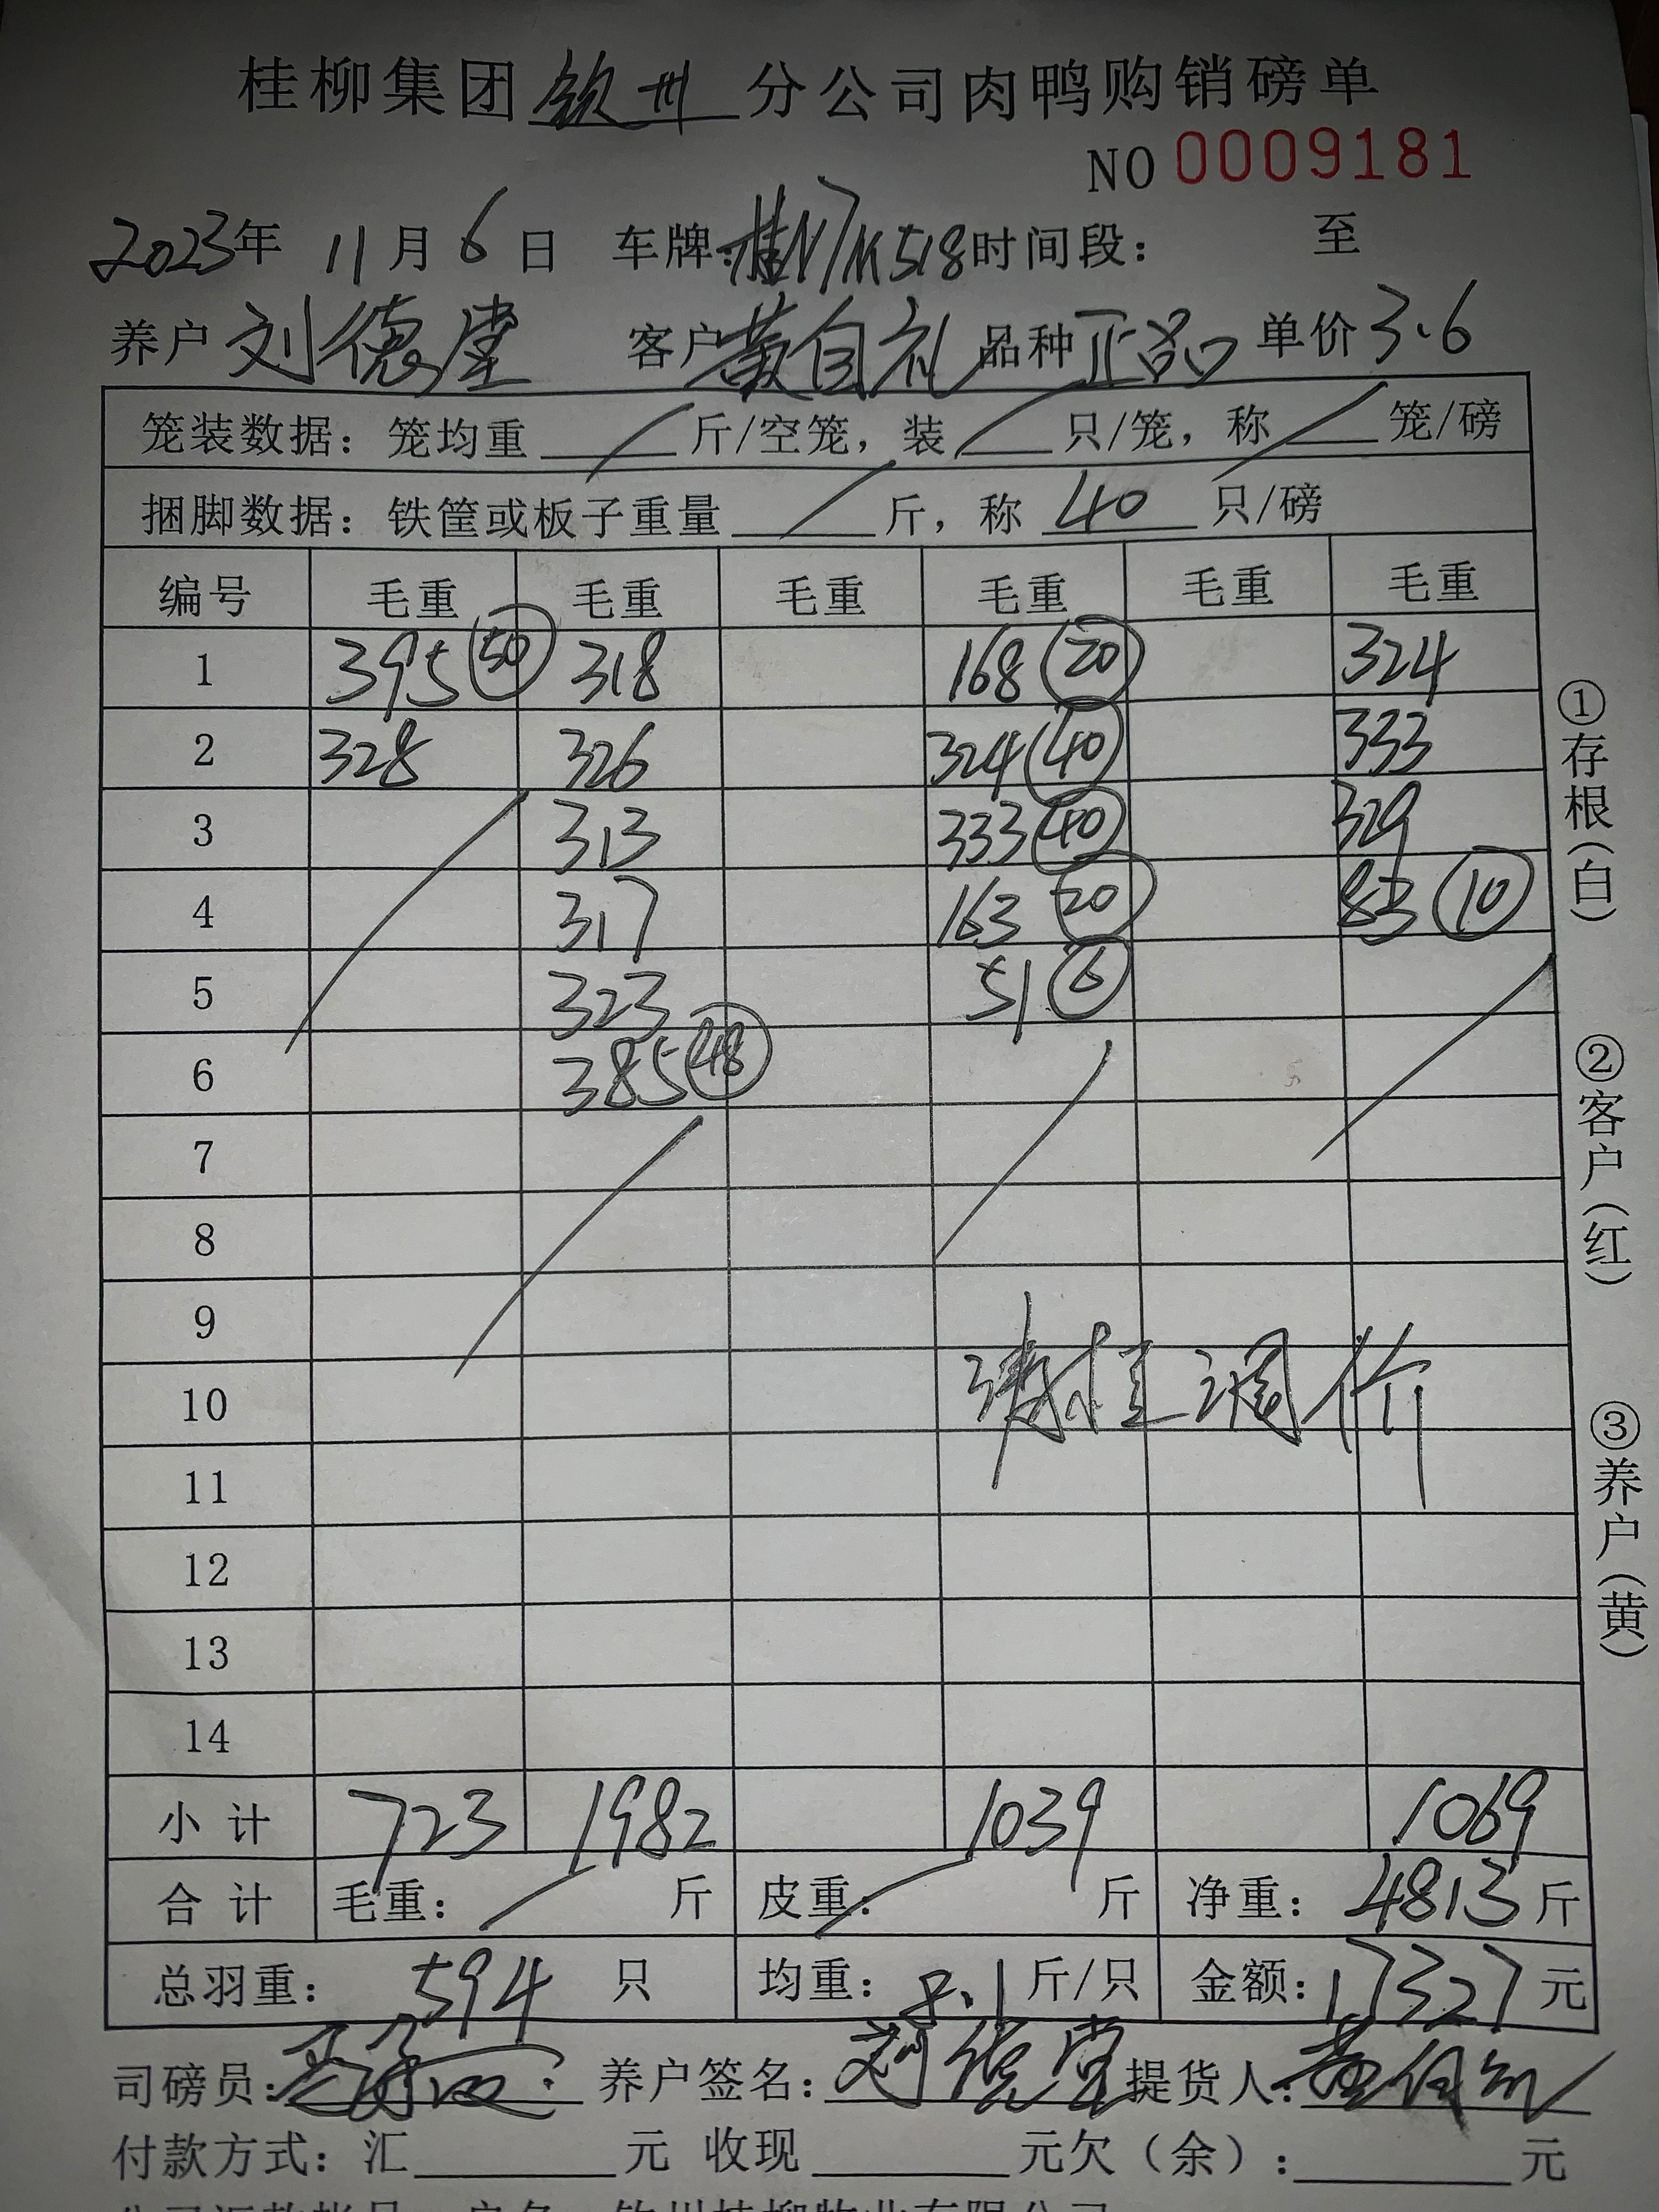 桂柳集团钦州分公司肉鸭购销磅单
NO 0009181
2023年 11月6日 车牌:桂N7M518时间段: 至
养户 刘德堂 客户 黄自礼 品种 正品 单价 3.6
笼装数据: 笼均重 / 斤/空笼, 装 / 只/笼, 称 / 笼/磅
捆脚数据: 铁筐或板子重量 / 斤, 称 40 只/磅
编号 毛重 毛重 毛重 毛重 毛重 毛重
1 395 (50) 318 168 (20) 324
2 328 326 324 (40) 333
3 313 333 (40) 329
4 317 163 (20) 83 (10)
5 323 51 (6)
6 385 (48)
7
8
9
10 调价
11
12
13
14
小计 723 1982 1039 1069
合计 毛重: / 斤 皮重: / 斤 净重: 4813 斤
总羽重: 594 只 均重: 8.1 斤/只 金额: 17327 元
司磅员: 养户签名: 刘德堂 提货人:
付款方式: 汇 元 收现 元欠(余): 元
①存根(白)
②客户(红)
③养户(黄)